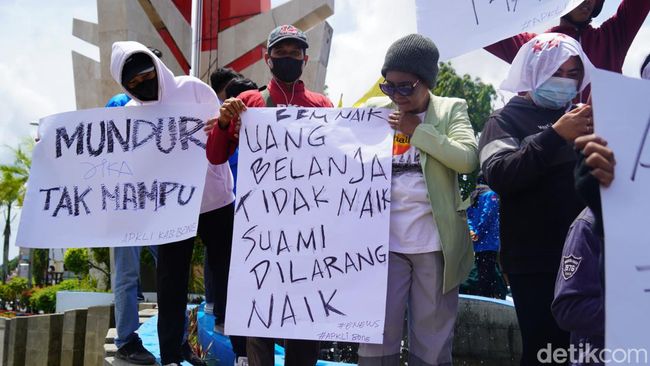 MUNDUR
JIKA
TAK MAMPU
APKLI KAB.BONE
BBM NAIK
UANG
BELANJA
TIDAK NAIK
SUAMI
DILARANG
NAIK
#ENEWS
#APKLI BONE
detikcom